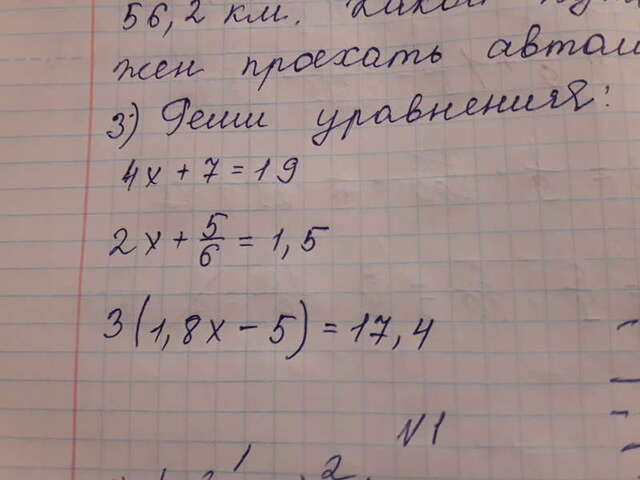 56,2 км. Какой
жен проехать автом
3) Реши уравнения:
4x + 7 = 19
2x + 5/6 = 1,5
3(1,8x - 5) = 17,4
N1